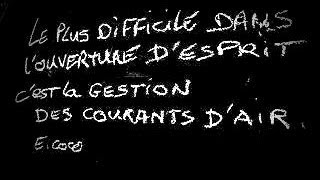 LE PLUS DIFFICILE DANS
L'OUVERTURE D'ESPRIT
c'EST la GESTION
DES COURANTS D'AIR.
E. coco